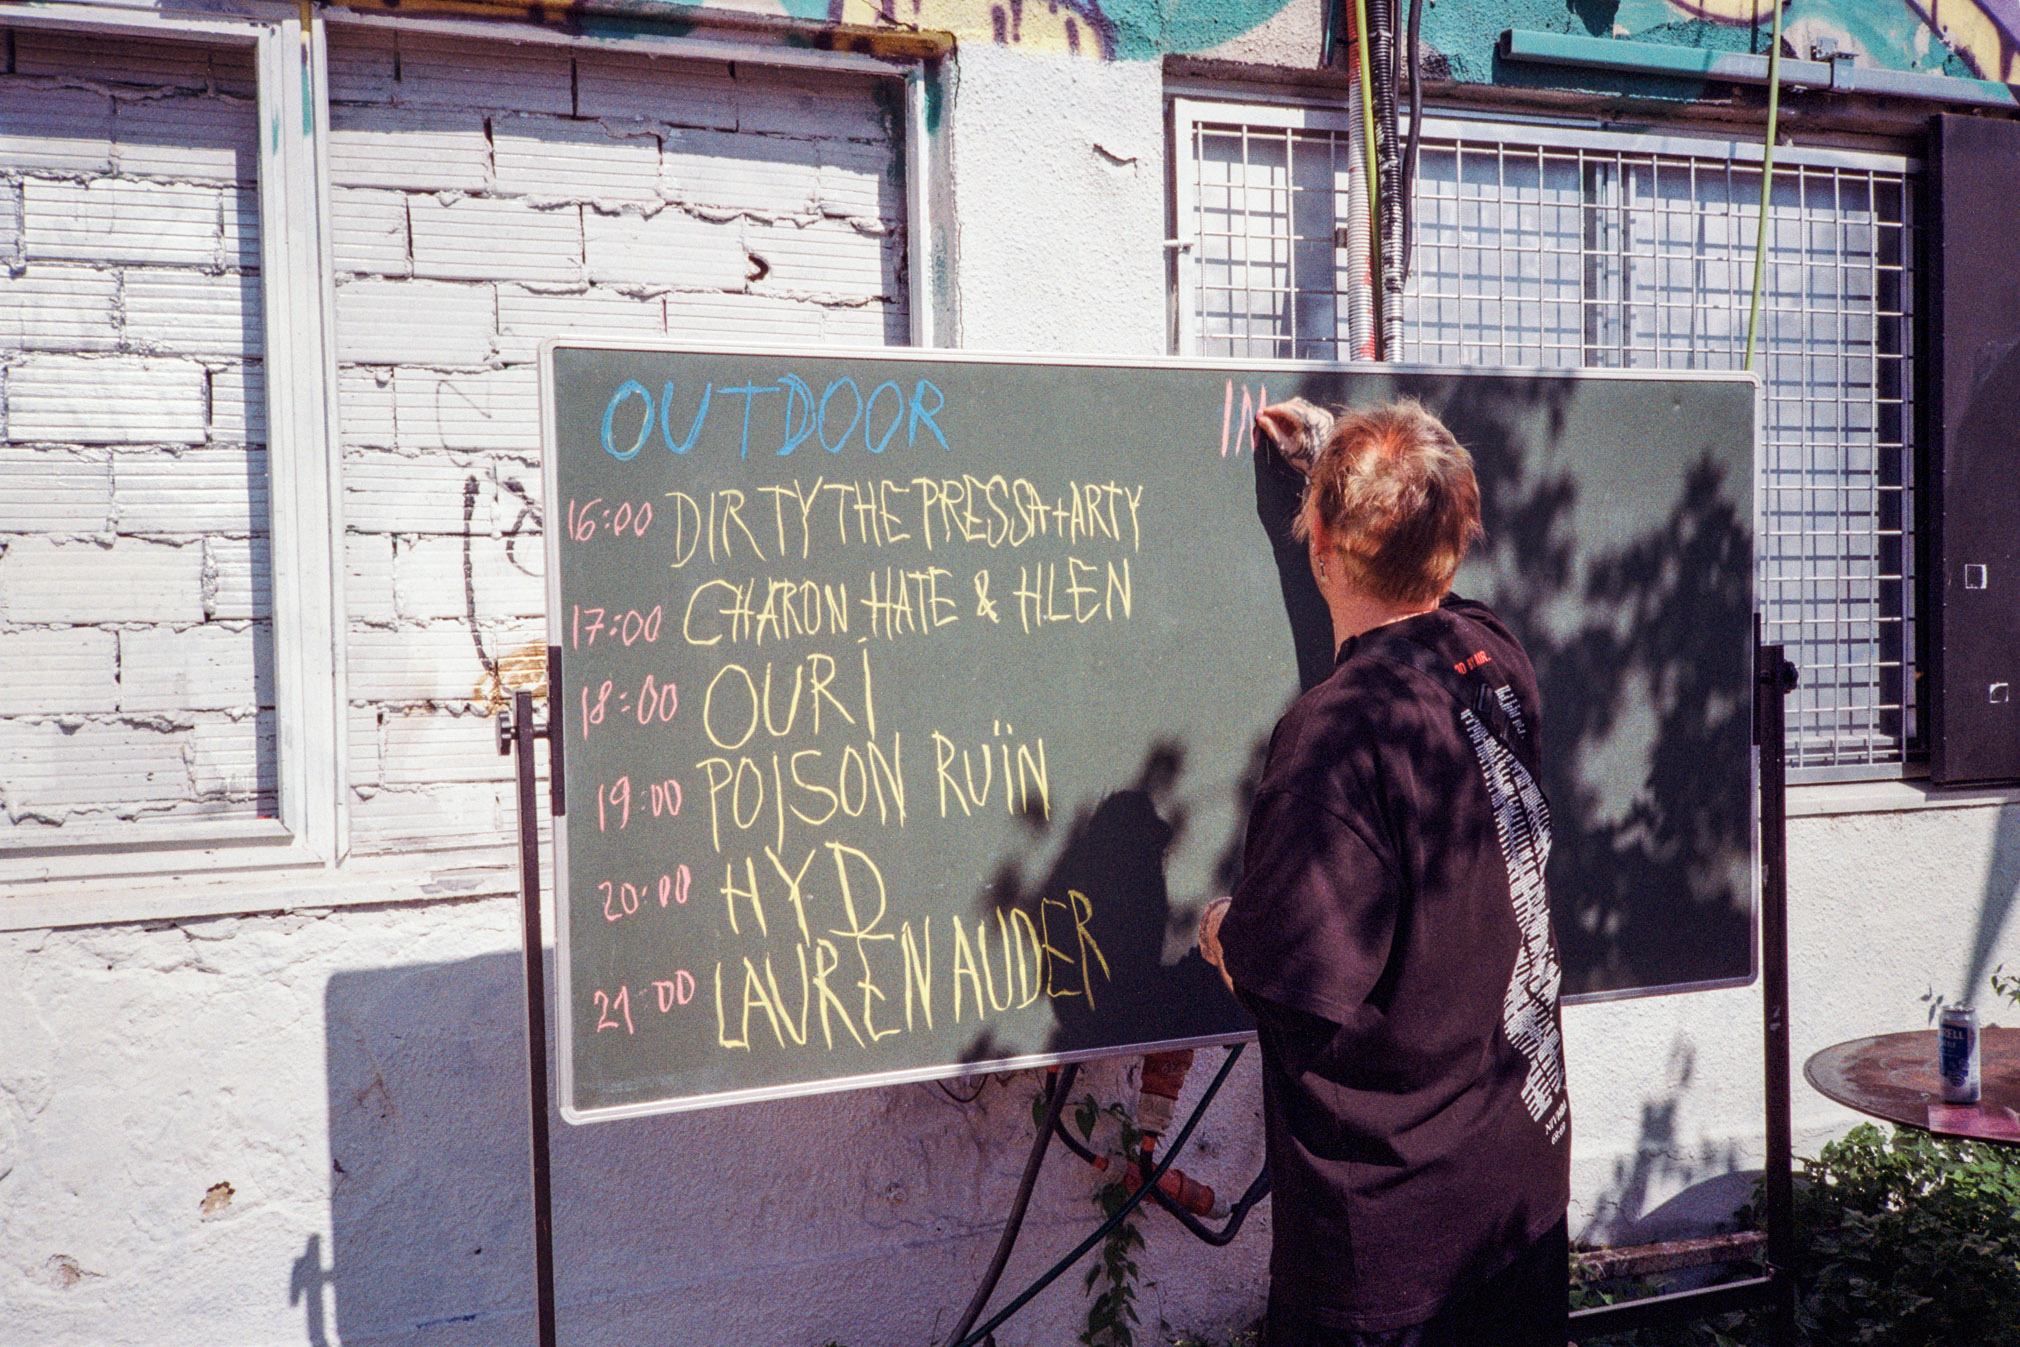 OUTDOOR
IN
16:00 DIRTYTHEPRESSA+ARTY
17:00 CHARON HATE & HLEN
18:00 OURI
19:00 POISON RUÏN
20:00 HYD
21:00 LAUREN AUDER